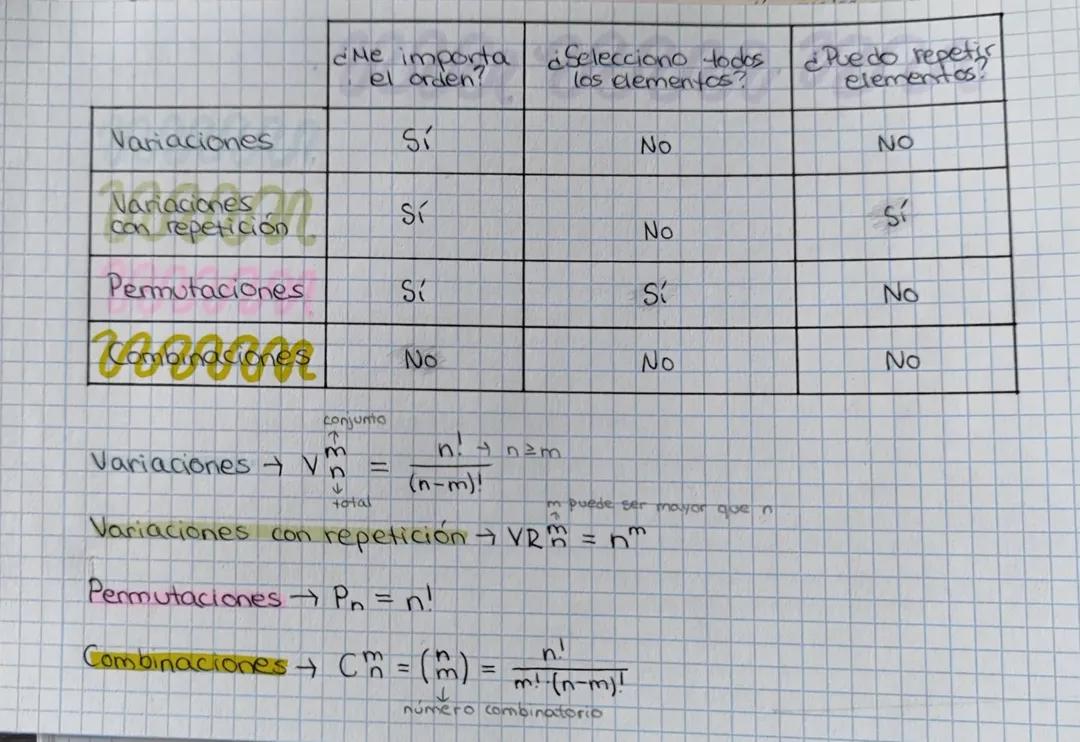 ¿Me importa el orden? ¿Selecciono todos los elementos? ¿Puedo repetir elementos?
Variaciones Sí No No
Variaciones con repetición Sí No Sí
Permutaciones Sí Sí No
Combinaciones No No No
conjunto
↑
Variaciones → V m n = n! / (n-m)! → n≥m
↓
total
m puede ser mayor que n
↑
Variaciones con repetición → VR m n = nᵐ
Permutaciones → Pn = n!
Combinaciones → C m n = (n m) = n! / m!·(n-m)!
↓
número combinatorio